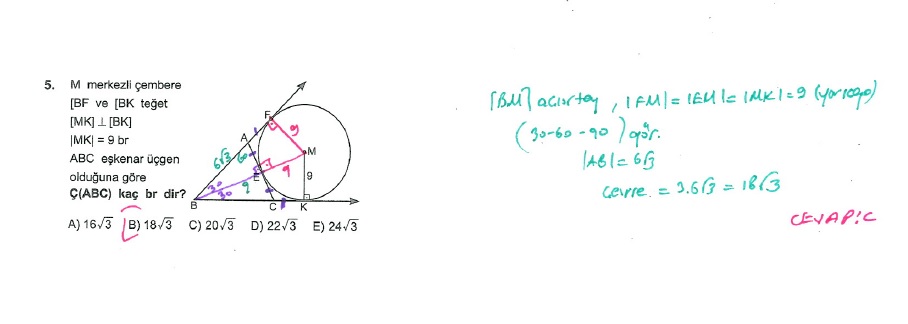 5. M merkezli çembere
[BF ve [BK teğet
[MK] ⊥ [BK]
|MK| = 9 br
ABC eşkenar üçgen
olduğuna göre
Ç(ABC) kaç br dir?
A) 16√3 B) 18√3 C) 20√3 D) 22√3 E) 24√3
F
A
6√3
60
9
M
E
9
9
9
30
30
B
C
K
[BM] açıortay, |FM| = |EM| = |MK| = 9 (yarıçap)
(30-60-90) gör.
|AB| = 6√3
Çevre = 3.6√3 = 18√3
CEVAP: C